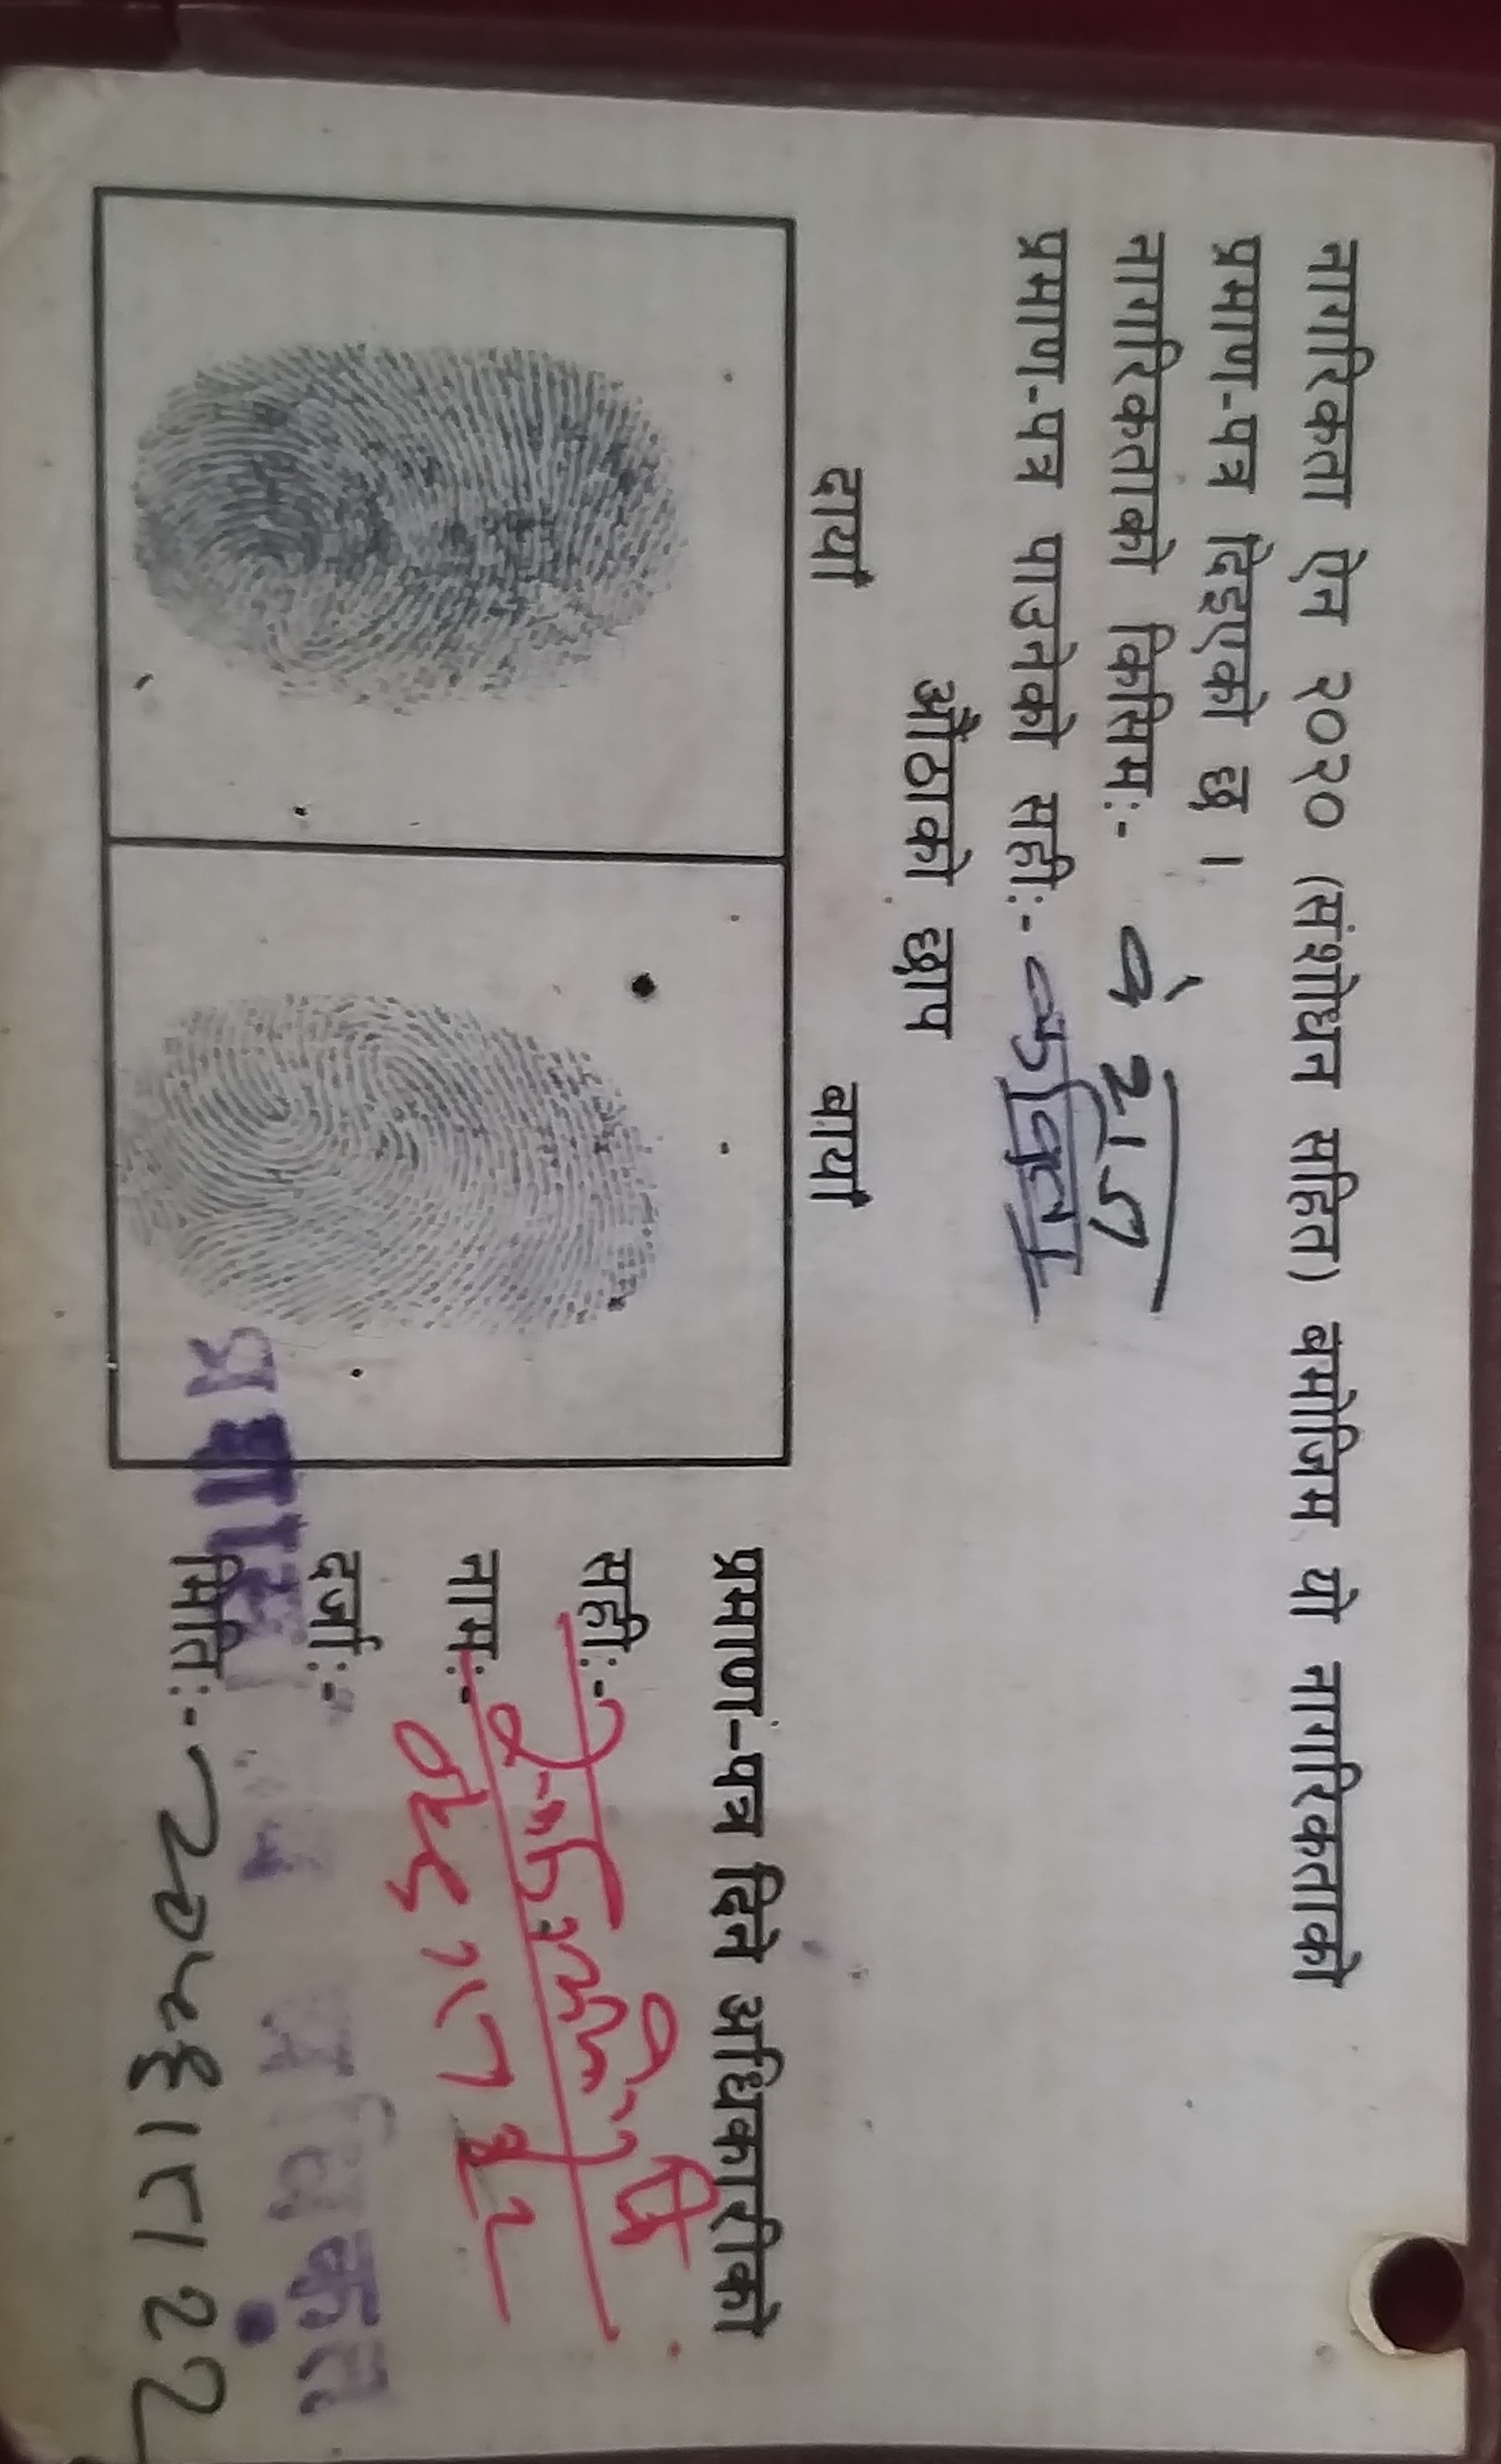 नागरिकता ऐन २०२० (संशोधन सहित) बमोजिम यो नागरिकताको
प्रमाण-पत्र दिइएको छ ।
नागरिकताको किसिमः- वंशज
प्रमाण-पत्र पाउनेको सहीः-
औंठाको छाप
दायाँ बायाँ
प्रमाण-पत्र दिने अधिकारीको
सहीः-
नामः-
दर्जाः-
मितिः- २०५६।८।२२